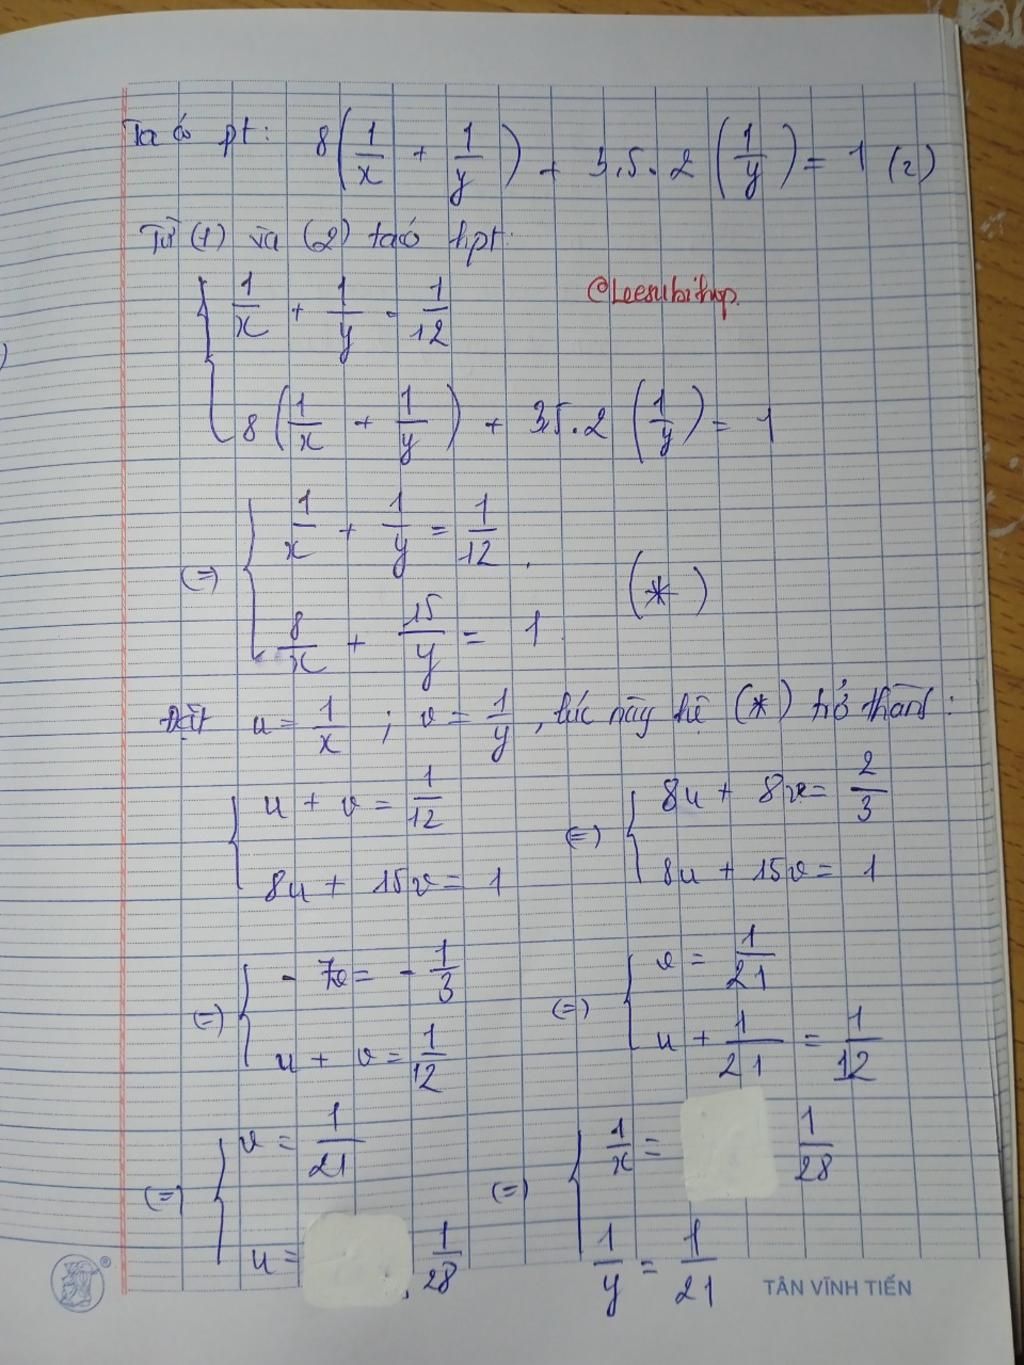 Ta có pt: 8(1/x + 1/y) + 3,5.2(1/y) = 1 (2)
Từ (1) và (2) ta có hpt:
@Leesubithup.
{ 1/x + 1/y = 1/12
8(1/x + 1/y) + 3,5.2(1/y) = 1
(=) { 1/x + 1/y = 1/12.
8/x + 15/y = 1 (*)
Đặt u = 1/x ; v = 1/y, lúc này hệ (*) trở thành:
{ u + v = 1/12
8u + 15v = 1
(=) { 8u + 8v = 2/3
8u + 15v = 1
(=) { - 7v = - 1/3
u + v = 1/12
(=) { v = 1/21
u + 1/21 = 1/12
(=) { v = 1/21
u = 1/28
(=) { 1/x = 1/28
1/y = 1/21
TÂN VĨNH TIẾN